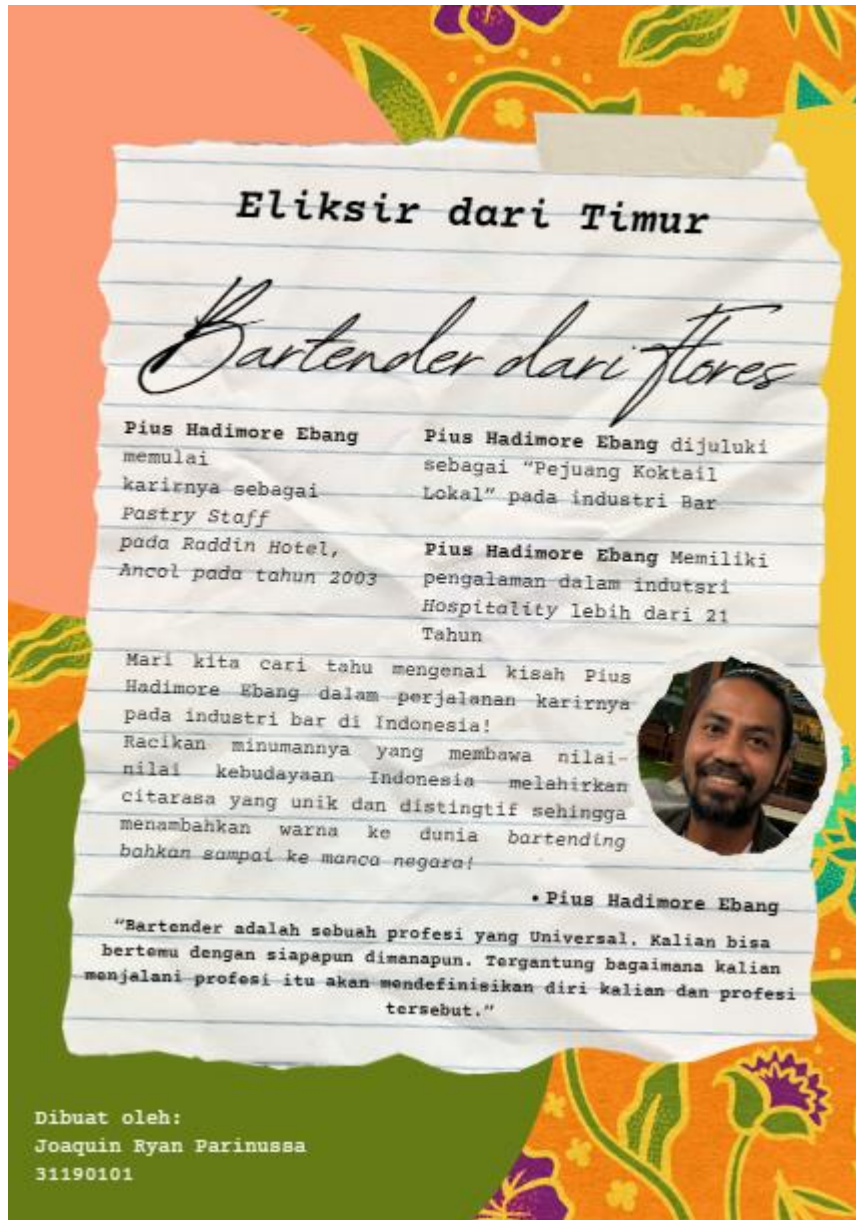 Eliksir dari Timur
Bartender dari flores
Pius Hadimore Ebang
memulai
karirnya sebagai
Pastry Staff
pada Raddin Hotel,
Ancol pada tahun 2003
Pius Hadimore Ebang dijuluki
sebagai “Pejuang Koktail
Lokal” pada industri Bar
Pius Hadimore Ebang Memiliki
pengalaman dalam indutsri
Hospitality lebih dari 21
Tahun
Mari kita cari tahu mengenai kisah Pius
Hadimore Ebang dalam perjalanan karirnya
pada industri bar di Indonesia!
Racikan minumannya yang membawa nilai-
nilai kebudayaan Indonesia melahirkan
citarasa yang unik dan distingtif sehingga
menambahkan warna ke dunia bartending
bahkan sampai ke manca negara!
• Pius Hadimore Ebang
“Bartender adalah sebuah profesi yang Universal. Kalian bisa
bertemu dengan siapapun dimanapun. Tergantung bagaimana kalian
menjalani profesi itu akan mendefinisikan diri kalian dan profesi
tersebut.”
Dibuat oleh:
Joaquin Ryan Parinussa
31190101